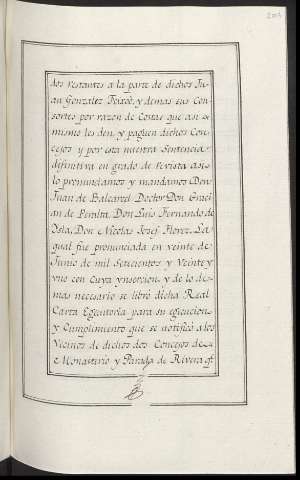 dos restantes a la parte de dichos Ju-
an Gonzalez Teixeo, y demas sus Con-
sortes por razon de Costas que asi
mismo les den, y paguen dichos Con-
cejos y por esta nuestra Sentencia
definitiva en grado de revista asi
lo pronunciamos y mandamos Don
Juan de Balcarcel Doctor Don Graci-
an de Peralta, Don Luis Fernando de
Isla, Don Nicolas Josef Florez. La
qual fue pronunciada en veinte de
Junio de mil Setecientos y Veinte y
uno con Cuya ynsercion, y de lo de-
mas necesario se libró dicha Real
Carta Egecutoria para su egecucion
y Cumplimiento que se notificó a los
Vecinos de dichos dos Concejos de
Monasterio y Parada de Rivera qe